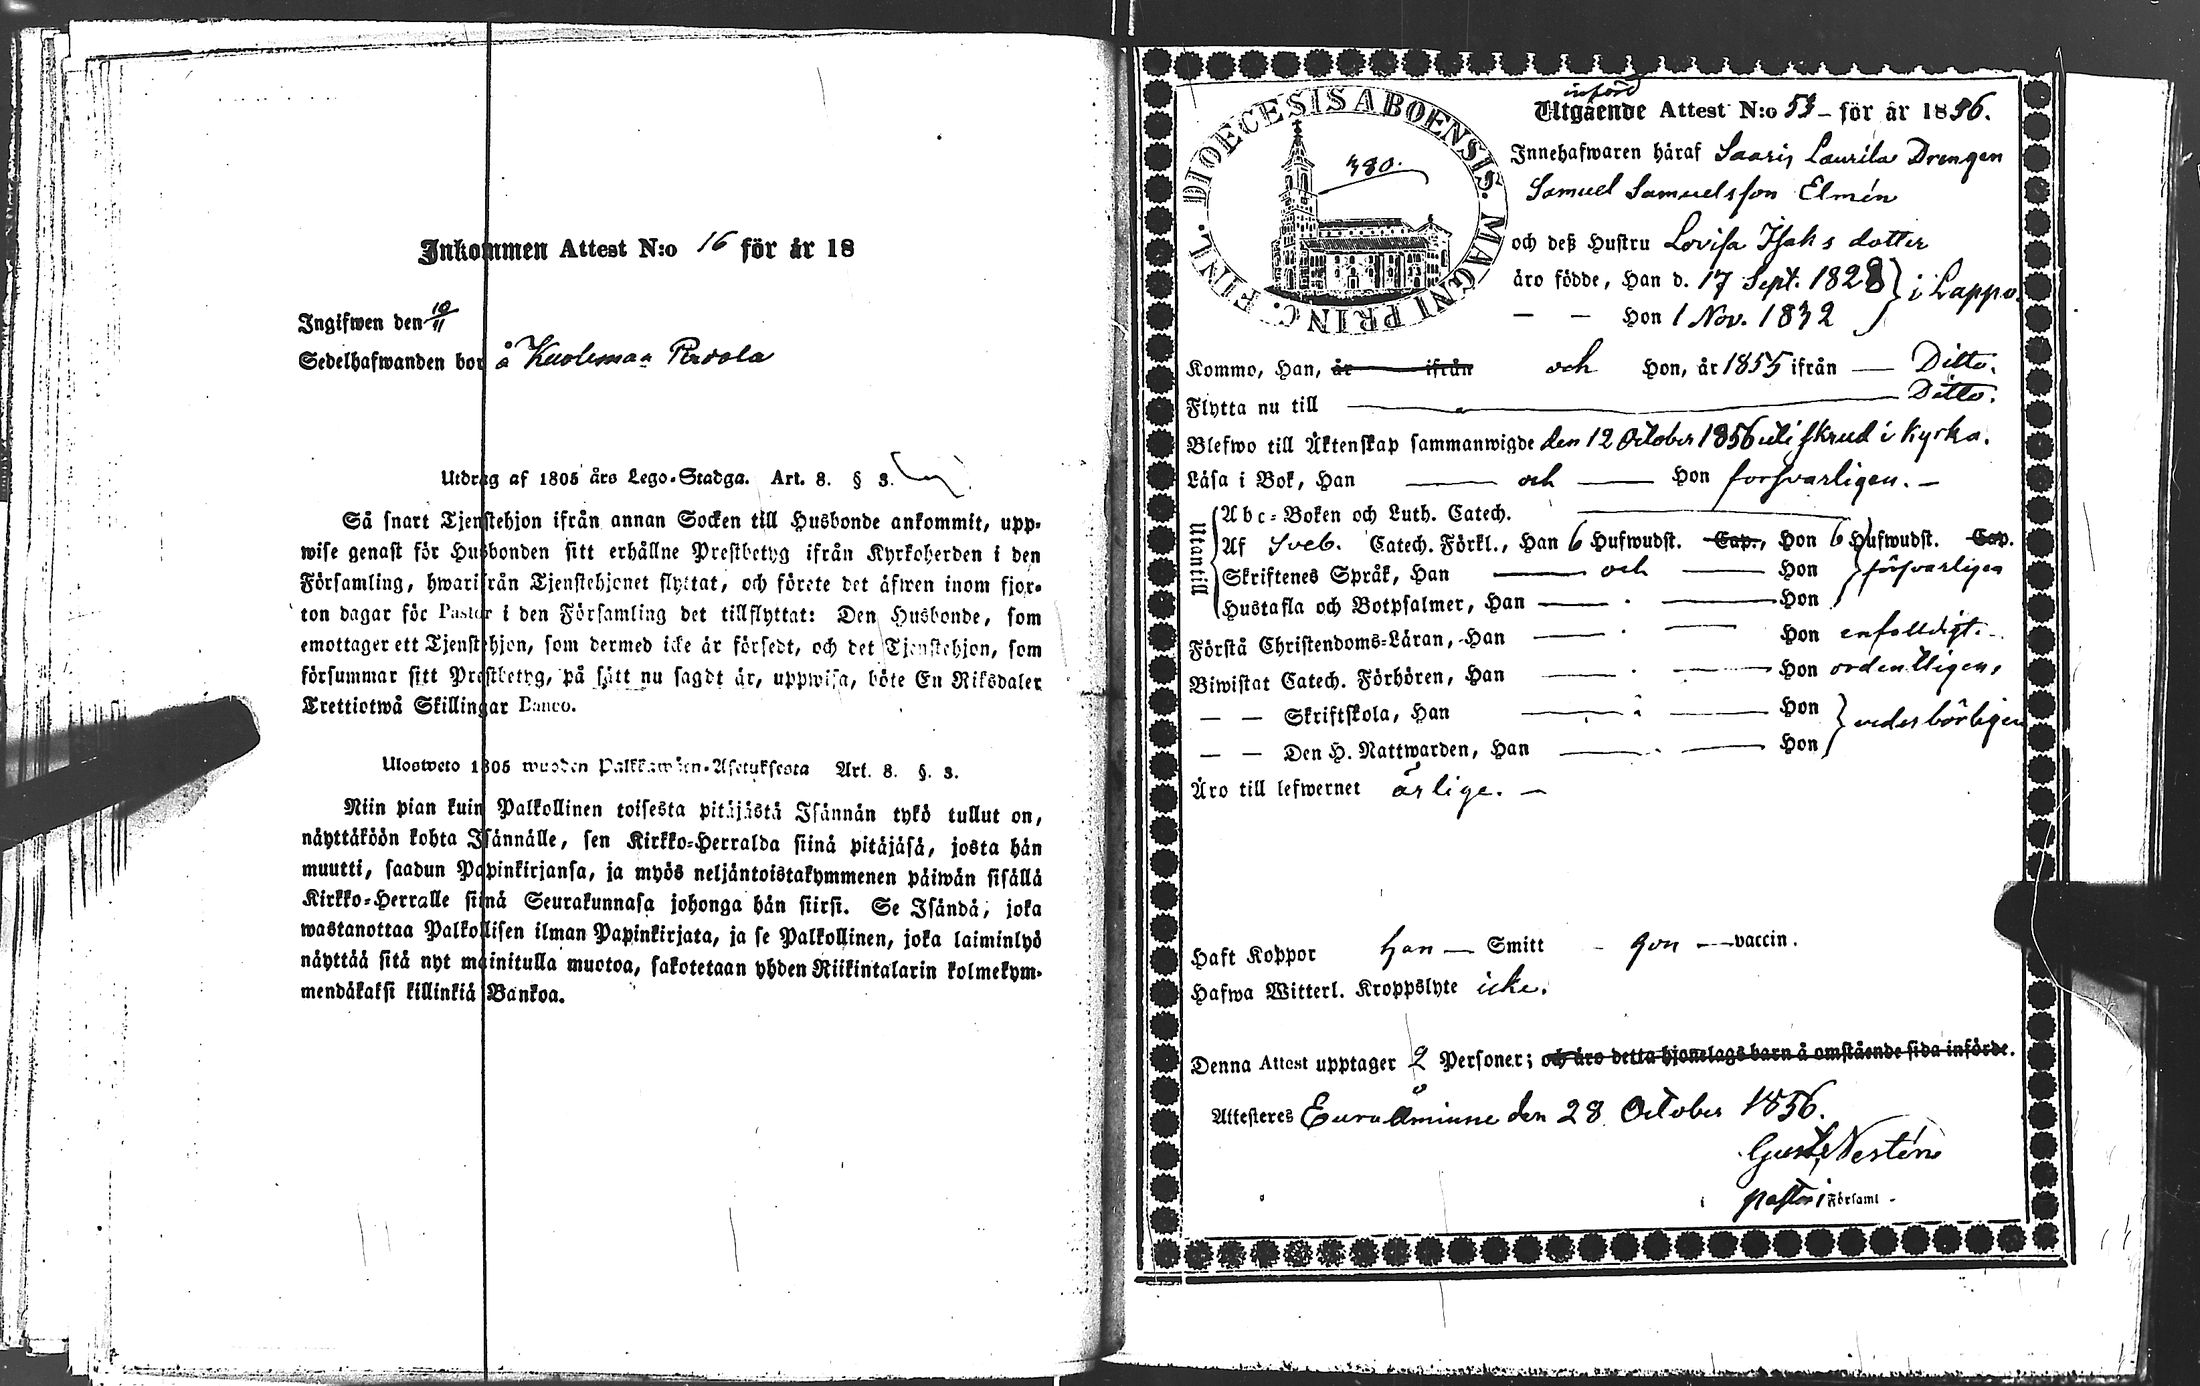 Inkommen Attest N:o 16 för år 18
Ingifwen den 10/11
Sedelhafwanden bor å Kuolemaa Perdola
Utdrag af 1805 års Lego-Stadga. Art. 8. § 3.
Så snart Tjenstehjon ifrån annan Socken till Husbonde ankommit, upp-
wise genast för Husbonden sitt erhållne Prestbetyg ifrån Kyrkoherden i den
Församling, hwarifrån Tjenstehjonet flyttat, och förete det äfwen inom fjor-
ton dagar för Pastor i den Församling det tillflyttat: Den Husbonde, som
emottager ett Tjenstehjon, som dermed icke är försedt, och det Tjenstehjon, som
försummar sitt Prestbetyg, på sätt nu sagdt är, uppwisa, böte En Riksdaler
Trettiotwå Skillingar Banco.
Ulosweto 1805 wuoden Palkkawäen-Asetuksesta Art. 8. §. 3.
Niin pian kuin Palkollinen toisesta pitäjästä Isännän tykö tullut on,
näyttäköön kohta Isännälle, sen Kirkko-Herralda siinä pitäjäsä, josta hän
muutti, saadun Papinkirjansa, ja myös neljäntoistakymmenen päiwän sisällä
Kirkko-Herralle siinä Seurakunnasa johonga hän siirsi. Se Isändä, joka
wastanottaa Palkollisen ilman Papinkirjata, ja se Palkollinen, joka laiminlyö
näyttää sitä nyt mainitulla muotoa, sakotetaan yhden Riikintalarin kolmekym-
mendäkaksi killinkiä Bankoa.
DIOECESIS ABOENSIS. MAGNI PRINC. FINL.
380.
införd
Utgående Attest N:o 53 för år 1856.
Innehafwaren häraf Saaris Laurila Drengen
Samuel Samuelsson Elmén
och deß Hustru Lovisa Isaks dotter
äro födde, Han d. 17 Sept. 1828 } i Lappo.
— — Hon 1 Nov. 1832
Kommo, Han, år ifrån och Hon, år 1855 ifrån — Ditto.
Flytta nu till — Ditto.
Blefwo till Äktenskap sammanwigde den 12 October 1856 uti skrud i kyrka.
Läsa i Bok, Han — och — Hon forsvarligen. —
Utantill
Abc-Boken och Luth. Catech.
Af Sveb. Catech. Förkl., Han 6 Hufwudst. Cap., Hon 6 Hufwudst. Cap.
Skriftenes Språk, Han — och — Hon } försvarligen
Hustafla och Botpsalmer, Han — . — Hon
Förstå Christendoms-Läran, Han — . — Hon enfalldigt. —
Biwistat Catech. Förhören, Han — . — Hon ordentligen,
— — Skriftskola, Han — " — Hon } vederbörligen
— — Den H. Nattwarden, Han — . — Hon
Äro till lefwernet ärlige. —
Haft Koppor Han — Smitt - Hon — vaccin.
Hafwa Witterl. Kroppslyte icke.
Denna Attest upptager 2 Personer; och äro detta hjonelags barn å omstående sida införde.
Attesteres Euraåminne den 28 October 1856.
Gust. Nestén
pastor i Församl -